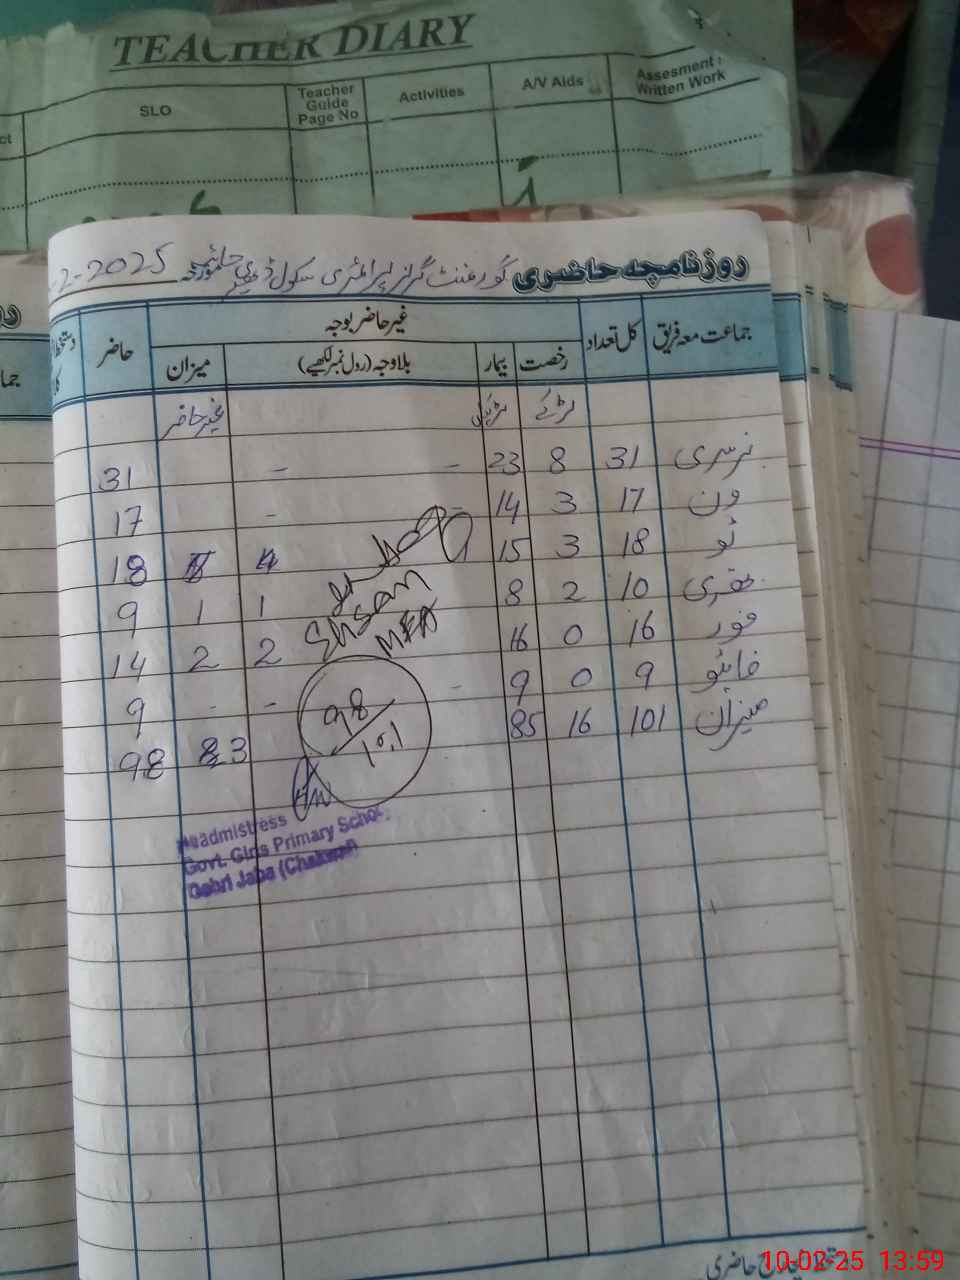 TEACHER DIARY
SLO
Teacher Guide Page No
Activities
A/V Aids
Assesment: Written Work
روزنامچہ حاضری گورنمنٹ گرلز پرائمری سکول 2-2025
جماعت معہ فریق کل تعداد غیر حاضر بوجہ حاضر
رخصت بیمار بلاوجہ (رول نمبر لکھیے) میزان
لڑکے لڑکیاں غیر حاضر
نرسری 31 8 23 - - 31
ون 17 3 14 - - 17
ٹو 18 3 15 18
تھری 10 2 8 1 1 9
فور 16 0 16 2 2 14
فائیو 9 0 9 - - - 9
میزان 101 16 85 3 98
Ehsan
MEA
98/101
Headmistress
Govt. Girls Primary School
Dehri Jaba (Chakwal)
حاضری
10-02-25 13:59